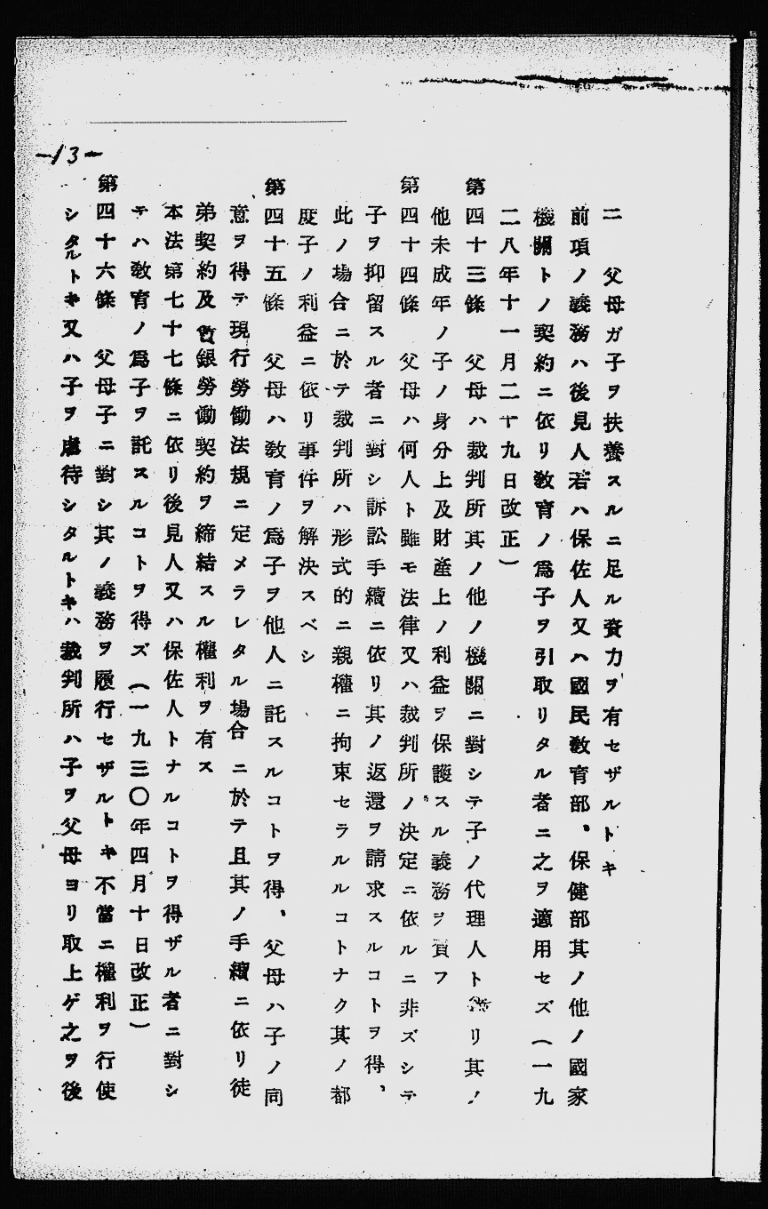 -13-
二　父母ガ子ヲ扶養スルニ足ル資力ヲ有セザルトキ
前項ノ義務ハ後見人若ハ保佐人又ハ國民敎育部、保健部其ノ他ノ國家
機關トノ契約ニ依リ敎育ノ爲子ヲ引取リタル者ニ之ヲ適用セズ(一九
二八年十一月二十九日改正)
第四十三條　父母ハ裁判所其ノ他ノ機關ニ對シテ子ノ代理人トリ其ノ
他未成年ノ子ノ身分上及財產上ノ利益ヲ保護スル義務ヲ負フ
第四十四條　父母ハ何人ト雖モ法律又ハ裁判所ノ決定ニ依ルニ非ズシテ
子ヲ抑留スル者ニ對シ訴訟手續ニ依リ其ノ返還ヲ請求スルコトヲ得、
此ノ場合ニ於テ裁判所ハ形式的ニ親權ニ拘束セラルルコトナク其ノ都
度子ノ利益ニ依リ事件ヲ解決スベシ
第四十五條　父母ハ敎育ノ爲子ヲ他人ニ託スルコトヲ得、父母ハ子ノ同
意ヲ得テ現行勞働法規ニ定メラレタル場合ニ於テ且其ノ手續ニ依リ徒
弟契約及賃銀勞働契約ヲ締結スル權利ヲ有ス
本法第七十七條ニ依リ後見人又ハ保佐人トナルコトヲ得ザル者ニ對シ
テハ敎育ノ爲子ヲ託スルコトヲ得ズ(一九三〇年四月十日改正)
第四十六條　父母子ニ對シ其ノ義務ヲ履行セザルトキ不當ニ權利ヲ行使
シタルトキ又ハ子ヲ虐待シタルトキハ裁判所ハ子ヲ父母ヨリ取上ゲ之ヲ後